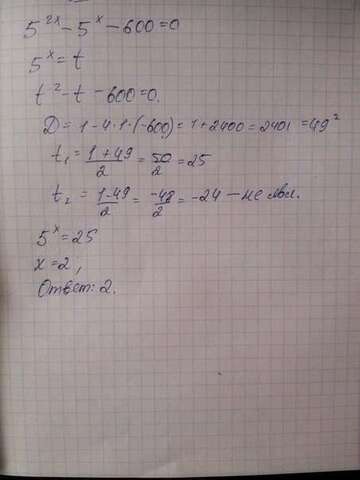 5^2x - 5^x - 600 = 0
5^x = t
t^2 - t - 600 = 0.
D = 1 - 4·1·(-600) = 1 + 2400 = 2401 = 49^2
t1 = (1 + 49)/2 = 50/2 = 25
t2 = (1 - 49)/2 = -48/2 = -24 — не явл.
5^x = 25
x = 2,
Ответ: 2.